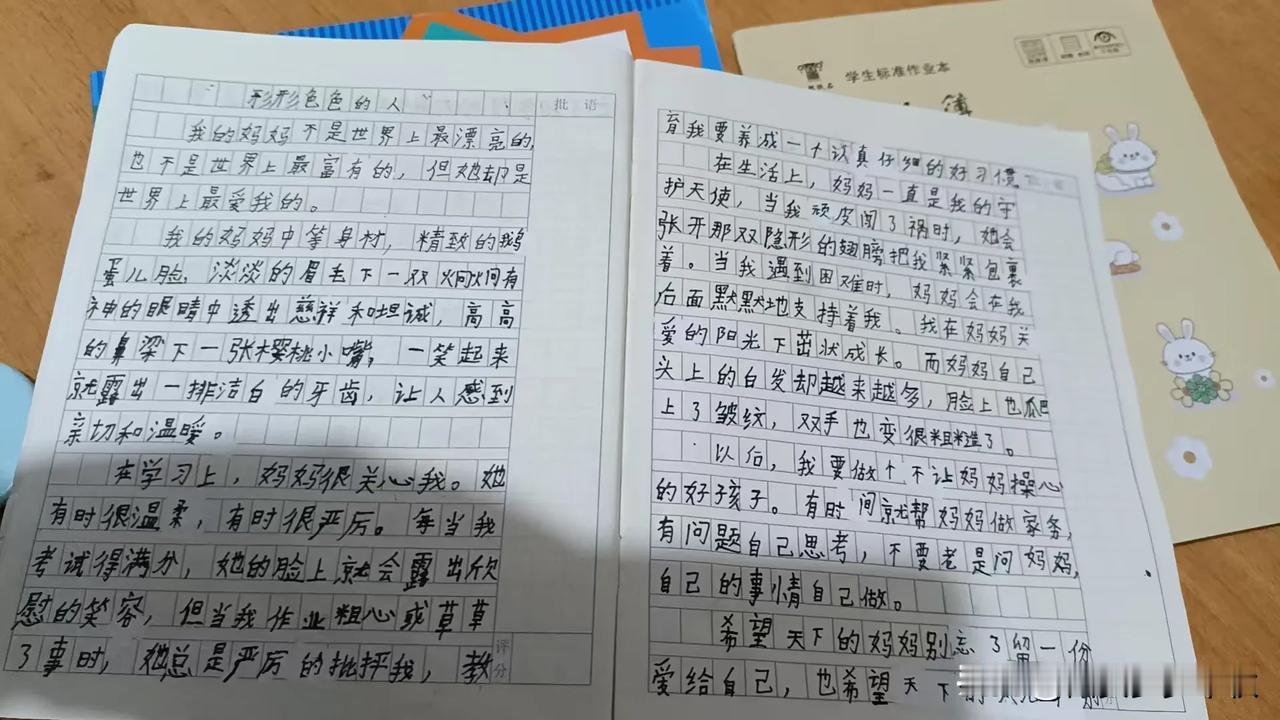 形形色色的人
批语
我的妈妈不是世界上最漂亮的,
也不是世界上最富有的，但她却是
世界上最爱我的。
我的妈妈中等身材，精致的鹅
蛋儿脸，淡淡的眉毛下一双炯炯有
神的眼睛中透出慈祥和坦诚，高高
的鼻梁下一张樱桃小嘴，一笑起来
就露出一排洁白的牙齿，让人感到
亲切和温暖。
在学习上，妈妈很关心我。她
有时很温柔，有时很严厉。每当我
考试得满分，她的脸上就会露出欣
慰的笑容，但当我作业粗心或草草
了事时，她总是严厉的批评我，教
评分
育我要养成一个认真仔细的好习惯
在生活上，妈妈一直是我的守
护天使，当我顽皮闯了祸时，她会
张开那双隐形的翅膀把我紧紧包裹
着。当我遇到困难时，妈妈会在我
后面默默地支持着我。我在妈妈关
爱的阳光下茁状成长。而妈妈自己
头上的白发却越来越多，脸上也爬
上了皱纹，双手也变很粗糙了。
以后，我要做个不让妈妈操心
的好孩子。有时间就帮妈妈做家务,
有问题自己思考，不要老是问妈妈,
自己的事情自己做。
希望天下的妈妈别忘了留一份
爱给自己，也希望天下的
学生标准作业本
簿